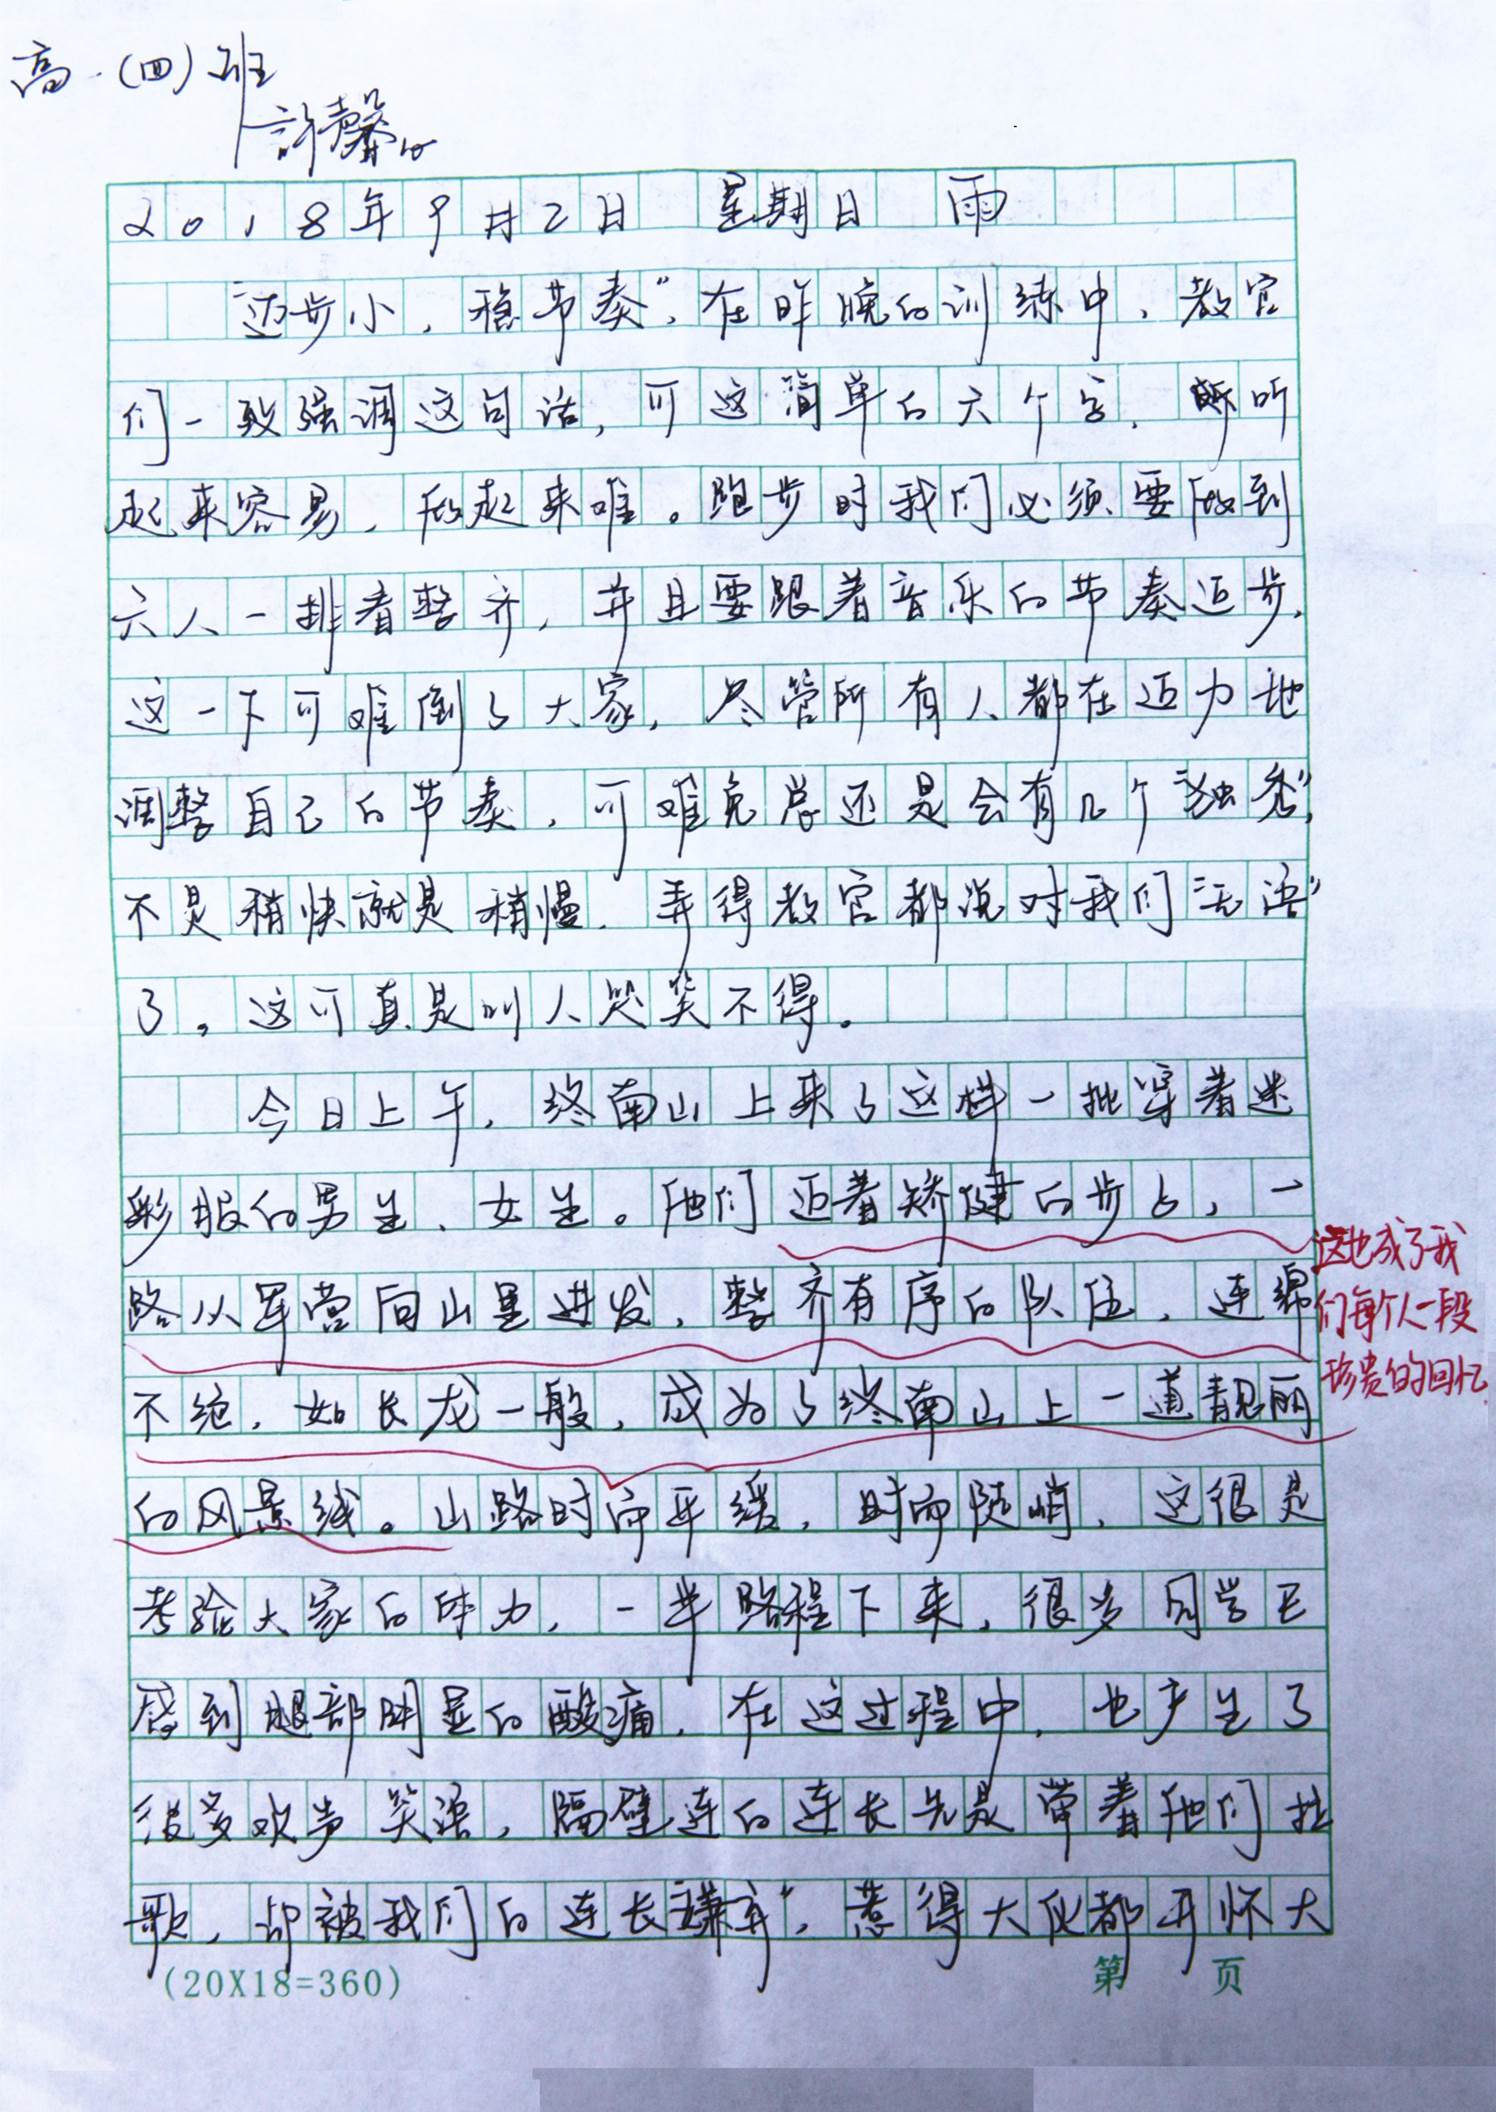 高一(四)班
許馨
2018年9月2日 星期日 雨
“迈步小，稳节奏”，在昨晚的训练中，教官
们一致强调这句话，可这简单的六个字，听
起来容易，做起来难。跑步时我们必须要做到
六人一排看整齐，并且要跟着音乐的节奏迈步，
这一下可难倒了大家，尽管所有人都在迈力地
调整自己的节奏，可难免总还是会有几个“独秀”，
不是稍快就是稍慢，弄得教官都说对我们“无语”
了。这可真是叫人哭笑不得。
今日上午，终南山上来了这样一批穿着迷
彩服的男生、女生。他们迈着矫健的步占，一
路从军营向山里进发，整齐有序的队伍，连绵
不绝，如长龙一般，成为了终南山上一道靓丽
的风景线。山路时而平缓，时而陡峭，这很是
考验大家的体力，一半路程下来，很多同学已
感到腿部明显的酸痛，在这过程中，也产生了
很多欢声笑语，隔壁连的连长先是带着他们拉
歌，却被我们的连长“嫌弃”，惹得大伙都开怀大
这也成了我
们每个人一段
珍贵的回忆
(20X18=360)
第 页